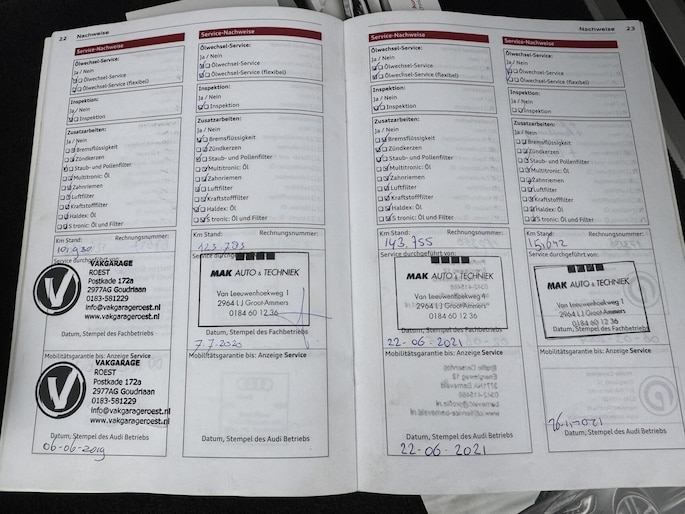 22 Nachweise
Service-Nachweise
Ölwechsel-Service:
Ja / Nein
Ölwechsel-Service
Ölwechsel-Service (flexibel)
Inspektion:
Ja / Nein
Inspektion
Zusatzarbeiten:
Ja / Nein
Bremsflüssigkeit
Zündkerzen
Staub- und Pollenfilter
Multitronic: Öl
Zahnriemen
Luftfilter
Kraftstofffilter
Haldex: Öl
S tronic: Öl und Filter
Km Stand: Rechnungsnummer:
Service durchgeführt von:
VAKGARAGE
ROEST
Postkade 172a
2977AG Goudriaan
0183-581229
info@vakgarageroest.nl
www.vakgarageroest.nl
Datum, Stempel des Fachbetriebs
Mobilitätsgarantie bis: Anzeige Service
VAKGARAGE
ROEST
Postkade 172a
2977AG Goudriaan
0183-581229
info@vakgarageroest.nl
www.vakgarageroest.nl
Datum, Stempel des Audi Betriebs
06-06-2019
Service-Nachweise
Ölwechsel-Service:
Ja / Nein
Ölwechsel-Service
Ölwechsel-Service (flexibel)
Inspektion:
Ja / Nein
Inspektion
Zusatzarbeiten:
Ja / Nein
Bremsflüssigkeit
Zündkerzen
Staub- und Pollenfilter
Multitronic: Öl
Zahnriemen
Luftfilter
Kraftstofffilter
Haldex: Öl
S tronic: Öl und Filter
Km Stand: Rechnungsnummer:
123.783
Service durchgeführt von:
MAK AUTO & TECHNIEK
Van Leeuwenhoekweg 1
2964 LJ Groot-Ammers
0184 60 12 36
Datum, Stempel des Fachbetriebs
7.7.2020
Mobilitätsgarantie bis: Anzeige Service
Datum, Stempel des Audi Betriebs
Nachweise 23
Service-Nachweise
Ölwechsel-Service:
Ja / Nein
Ölwechsel-Service
Ölwechsel-Service (flexibel)
Inspektion:
Ja / Nein
Inspektion
Zusatzarbeiten:
Ja / Nein
Bremsflüssigkeit
Zündkerzen
Staub- und Pollenfilter
Multitronic: Öl
Zahnriemen
Luftfilter
Kraftstofffilter
Haldex: Öl
S tronic: Öl und Filter
Km Stand: Rechnungsnummer:
143.755
Service durchgeführt von:
MAK AUTO & TECHNIEK
Van Leeuwenhoekweg 1
2964 LJ Groot-Ammers
0184 60 12 36
Datum, Stempel des Fachbetriebs
22-06-2021
Mobilitätsgarantie bis: Anzeige Service
Datum, Stempel des Audi Betriebs
22-06-2021
Service-Nachweise
Ölwechsel-Service:
Ja / Nein
Ölwechsel-Service
Ölwechsel-Service (flexibel)
Inspektion:
Ja / Nein
Inspektion
Zusatzarbeiten:
Ja / Nein
Bremsflüssigkeit
Zündkerzen
Staub- und Pollenfilter
Multitronic: Öl
Zahnriemen
Luftfilter
Kraftstofffilter
Haldex: Öl
S tronic: Öl und Filter
Km Stand: Rechnungsnummer:
Service durchgeführt von:
MAK AUTO & TECHNIEK
Van Leeuwenhoekweg 1
2964 LJ Groot-Ammers
0184 60 12 36
Datum, Stempel des Fachbetriebs
Mobilitätsgarantie bis: Anzeige Service
Datum, Stempel des Audi Betriebs